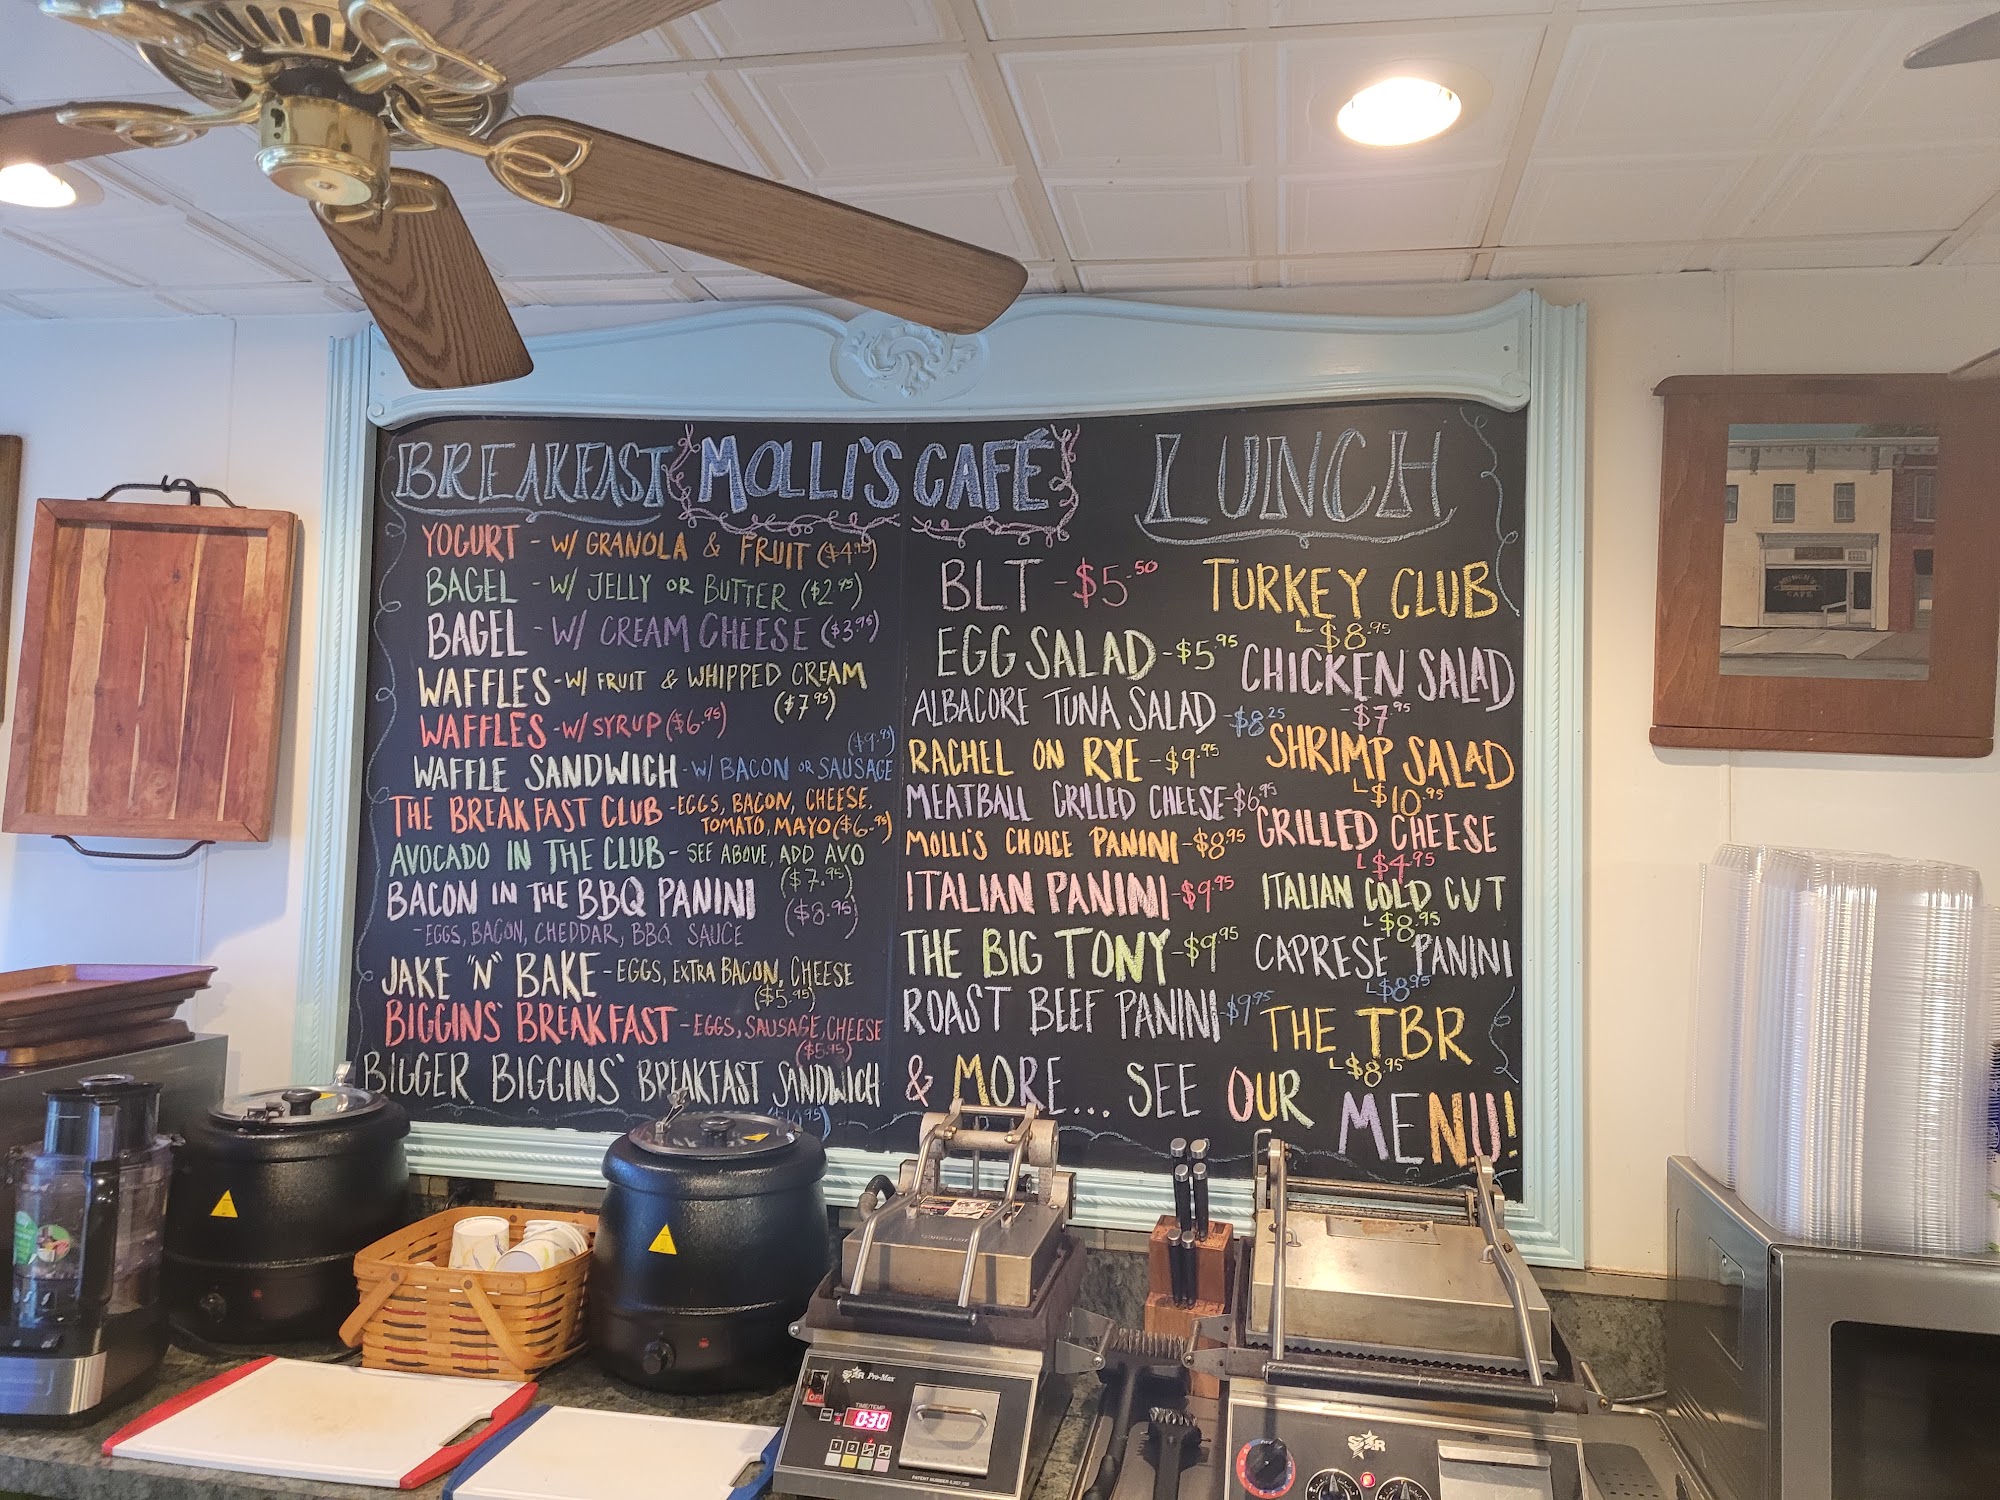 BREAKFAST
MOLLI'S CAFÉ
LUNCH
YOGURT - W/ GRANOLA & FRUIT ($4.95)
BAGEL - W/ JELLY OR BUTTER ($2.95)
BAGEL - W/ CREAM CHEESE ($3.95)
WAFFLES - W/ FRUIT & WHIPPED CREAM
($7.95)
WAFFLES - W/ SYRUP ($6.95)
($9.95)
WAFFLE SANDWICH - W/ BACON OR SAUSAGE
THE BREAKFAST CLUB - EGGS, BACON, CHEESE,
TOMATO, MAYO ($6.95)
AVOCADO IN THE CLUB - SEE ABOVE, ADD AVO
($7.95)
BACON IN THE BBQ PANINI ($8.95)
- EGGS, BACON, CHEDDAR, BBQ SAUCE
JAKE "N" BAKE - EGGS, EXTRA BACON, CHEESE
($5.95)
BIGGINS' BREAKFAST - EGGS, SAUSAGE, CHEESE
($5.95)
BIGGER BIGGINS' BREAKFAST SANDWICH
BLT - $5.50
EGG SALAD - $5.95
ALBACORE TUNA SALAD - $8.25
RACHEL ON RYE - $9.95
MEATBALL GRILLED CHEESE - $6.95
MOLLI'S CHOICE PANINI - $8.95
ITALIAN PANINI - $9.95
THE BIG TONY - $9.95
ROAST BEEF PANINI - $9.95
TURKEY CLUB
$8.95
CHICKEN SALAD
- $7.95
SHRIMP SALAD
$10.95
GRILLED CHEESE
$4.95
ITALIAN COLD CUT
$8.95
CAPRESE PANINI
$8.95
THE TBR
$8.95
& MORE... SEE OUR MENU!
CAFE
STAR Pro-Max
TIME/TEMP
0:30
OFF
1 2
STAR